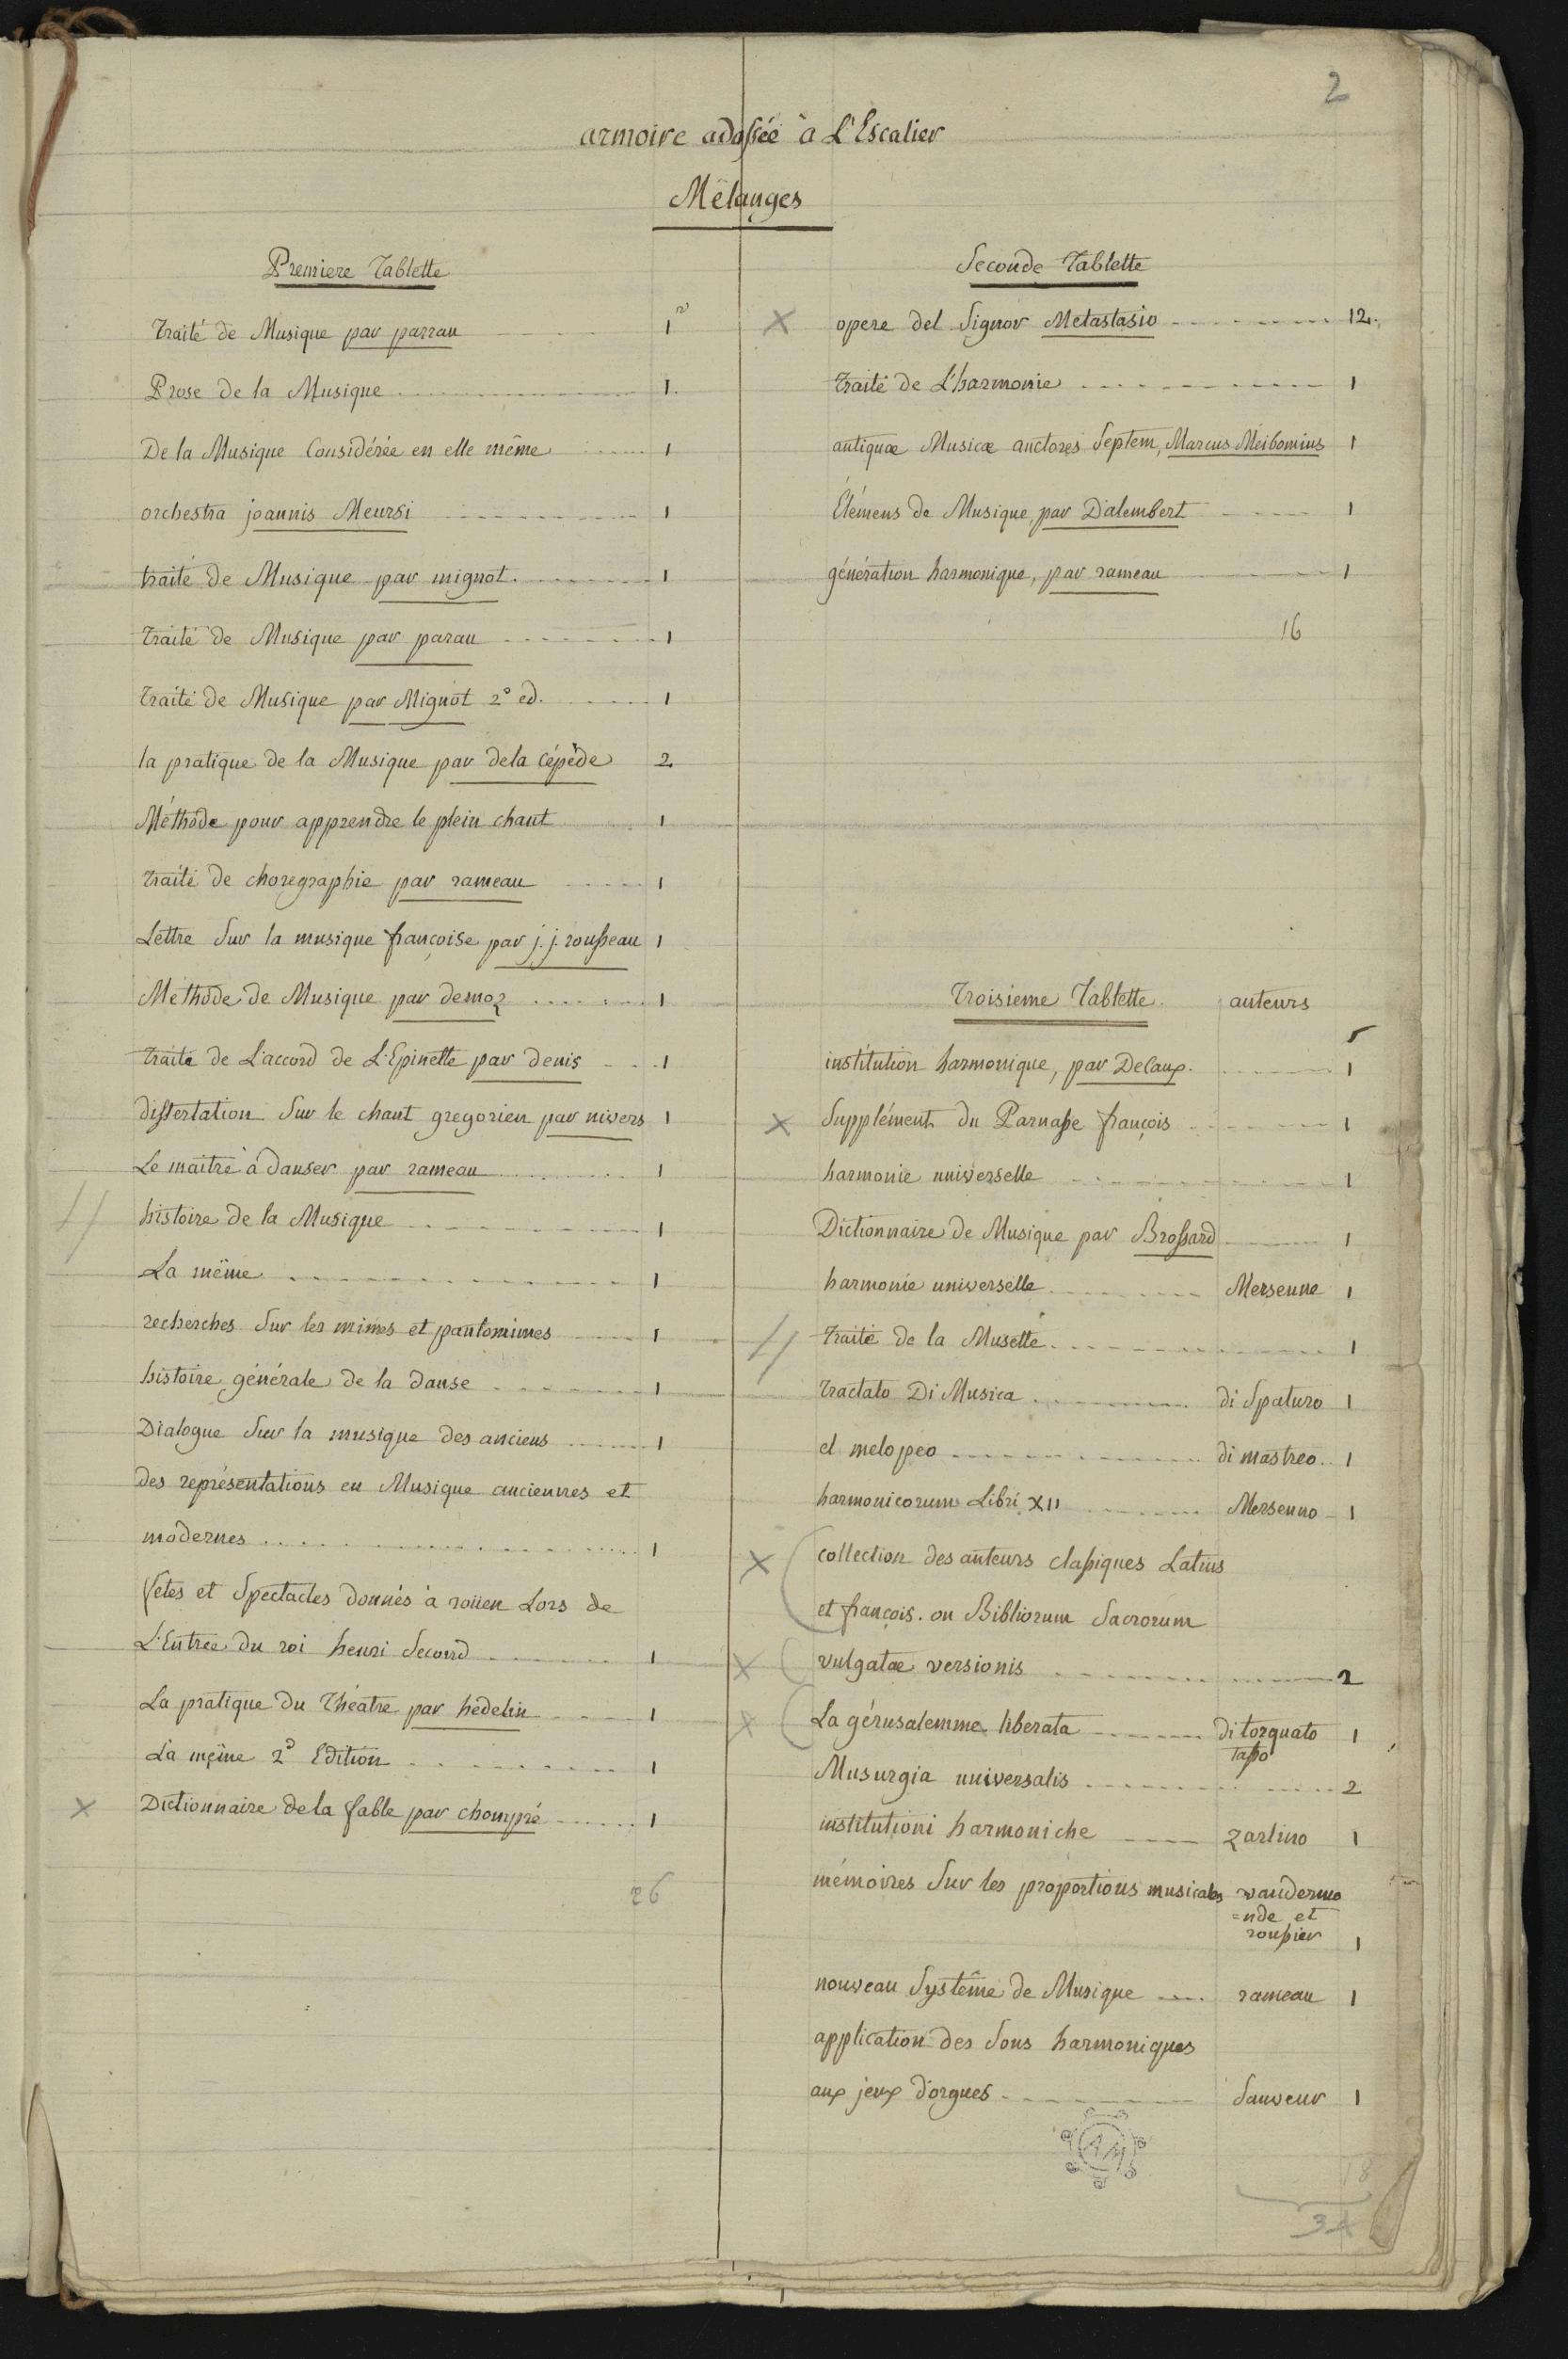 2
armoire adossée à L'Escalier
Mélanges
Premiere Tablette
Traité de Musique par parran 1 v
Prose de la Musique 1.
De la Musique Considérée en elle même 1
orchestra joannis Meursi 1
traité de Musique par mignot. 1
Traité de Musique par parau 1
Traité de Musique par Mignot 2e ed. 1
la pratique de la Musique par dela cépède 2
Méthode pour apprendre le plein chant 1
Traité de choregraphie par rameau 1
Lettre sur la musique françoise par j. j. rousseau 1
Méthode de Musique par demoz 1
Traité de L'accord de L'Epinette par denis 1
dissertation sur le chant gregorien par nivers 1
Le maitre à danser par rameau 1
histoire de la Musique 1
La même 1
recherches sur les mimes et pantomimes 1
histoire générale de la danse 1
Dialogue sur la musique des anciens 1
des représentations en Musique anciennes et
modernes 1
fetes et spectacles donnés à roüen Lors de
L'Entrée du roi henri second 1
La pratique du Théatre par hedelin 1
La même 2e Edition 1
X Dictionnaire de la fable par chompré 1
26
Seconde Tablette
X opere del Signor Metastasio 12.
Traité de L'harmonie 1
antiquæ Musicæ auctores Septem, Marcus Meibomius 1
Élémens de Musique, par Dalembert 1
génération harmonique, par rameau 1
16
Troisieme Tablette. auteurs
institution harmonique, par Decaux. 1
X Supplément du Parnasse françois 1
harmonie universelle 1
Dictionnaire de Musique par Brossard 1
harmonie universelle Mersenne 1
Traité de la Musette 1
Tractato Di Musica di Spaturo 1
el melopeo di mastreo 1
harmonicorum Libri XII Mersenno 1
X collection des auteurs classiques Latins
et françois. ou Bibliorum Sacrorum
X vulgatæ versionis 2
X La gérusalemme liberata di torquato 1
Tasso
Musurgia universalis 2
institutioni harmoniche zarlino 1
mémoires sur les proportions musicales vandermo
=nde et
roussier 1
nouveau systême de Musique rameau 1
application des sons harmoniques
aux jeux d'orgues Sauveur 1
AM
18
34